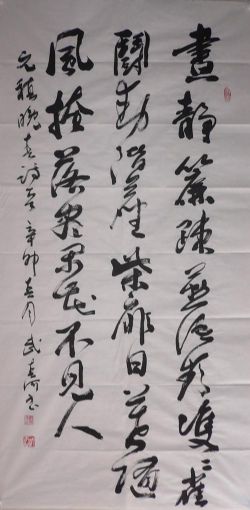 晝靜簾疎燕語頻雙〻雀
鬪動階塵柴扉日暮隨
風掩落盡閑花不見人
元稹晚春詩一首辛卯春月武春河書